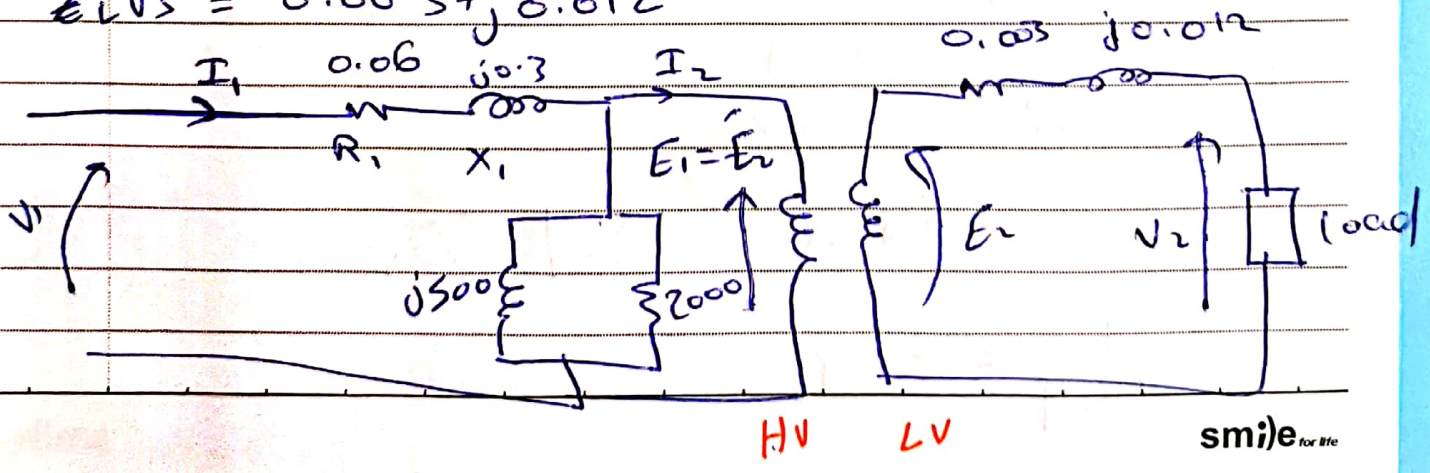 ELVS = 0.003+j0.012
0.003 j0.012
I₁ 0.06 j0.3 I₂
R₁ X₁ E₁=É₂
V₁ E₂ V₂ load
j500 2000
HV LV
smile for life